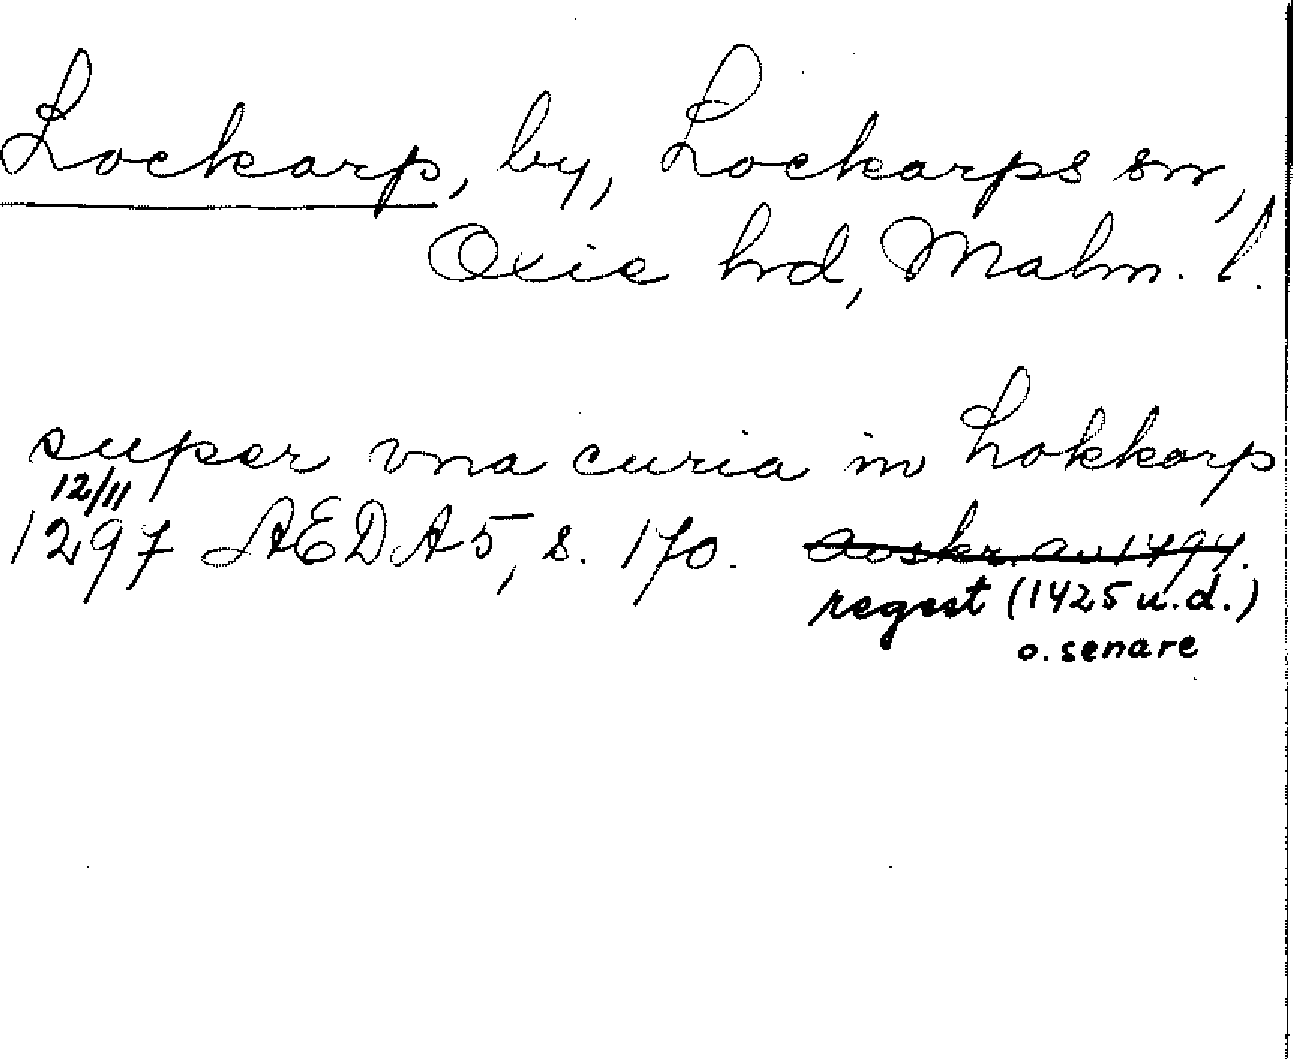 Lockarp, by, Lockarps sn,
Oxie hd, Malm. l.
super vna curia in Lokkorp
12/11
1297 ÆDA 5, s. 170. Avskr. av 1494.
regest (1425 u.d.)
o. senare